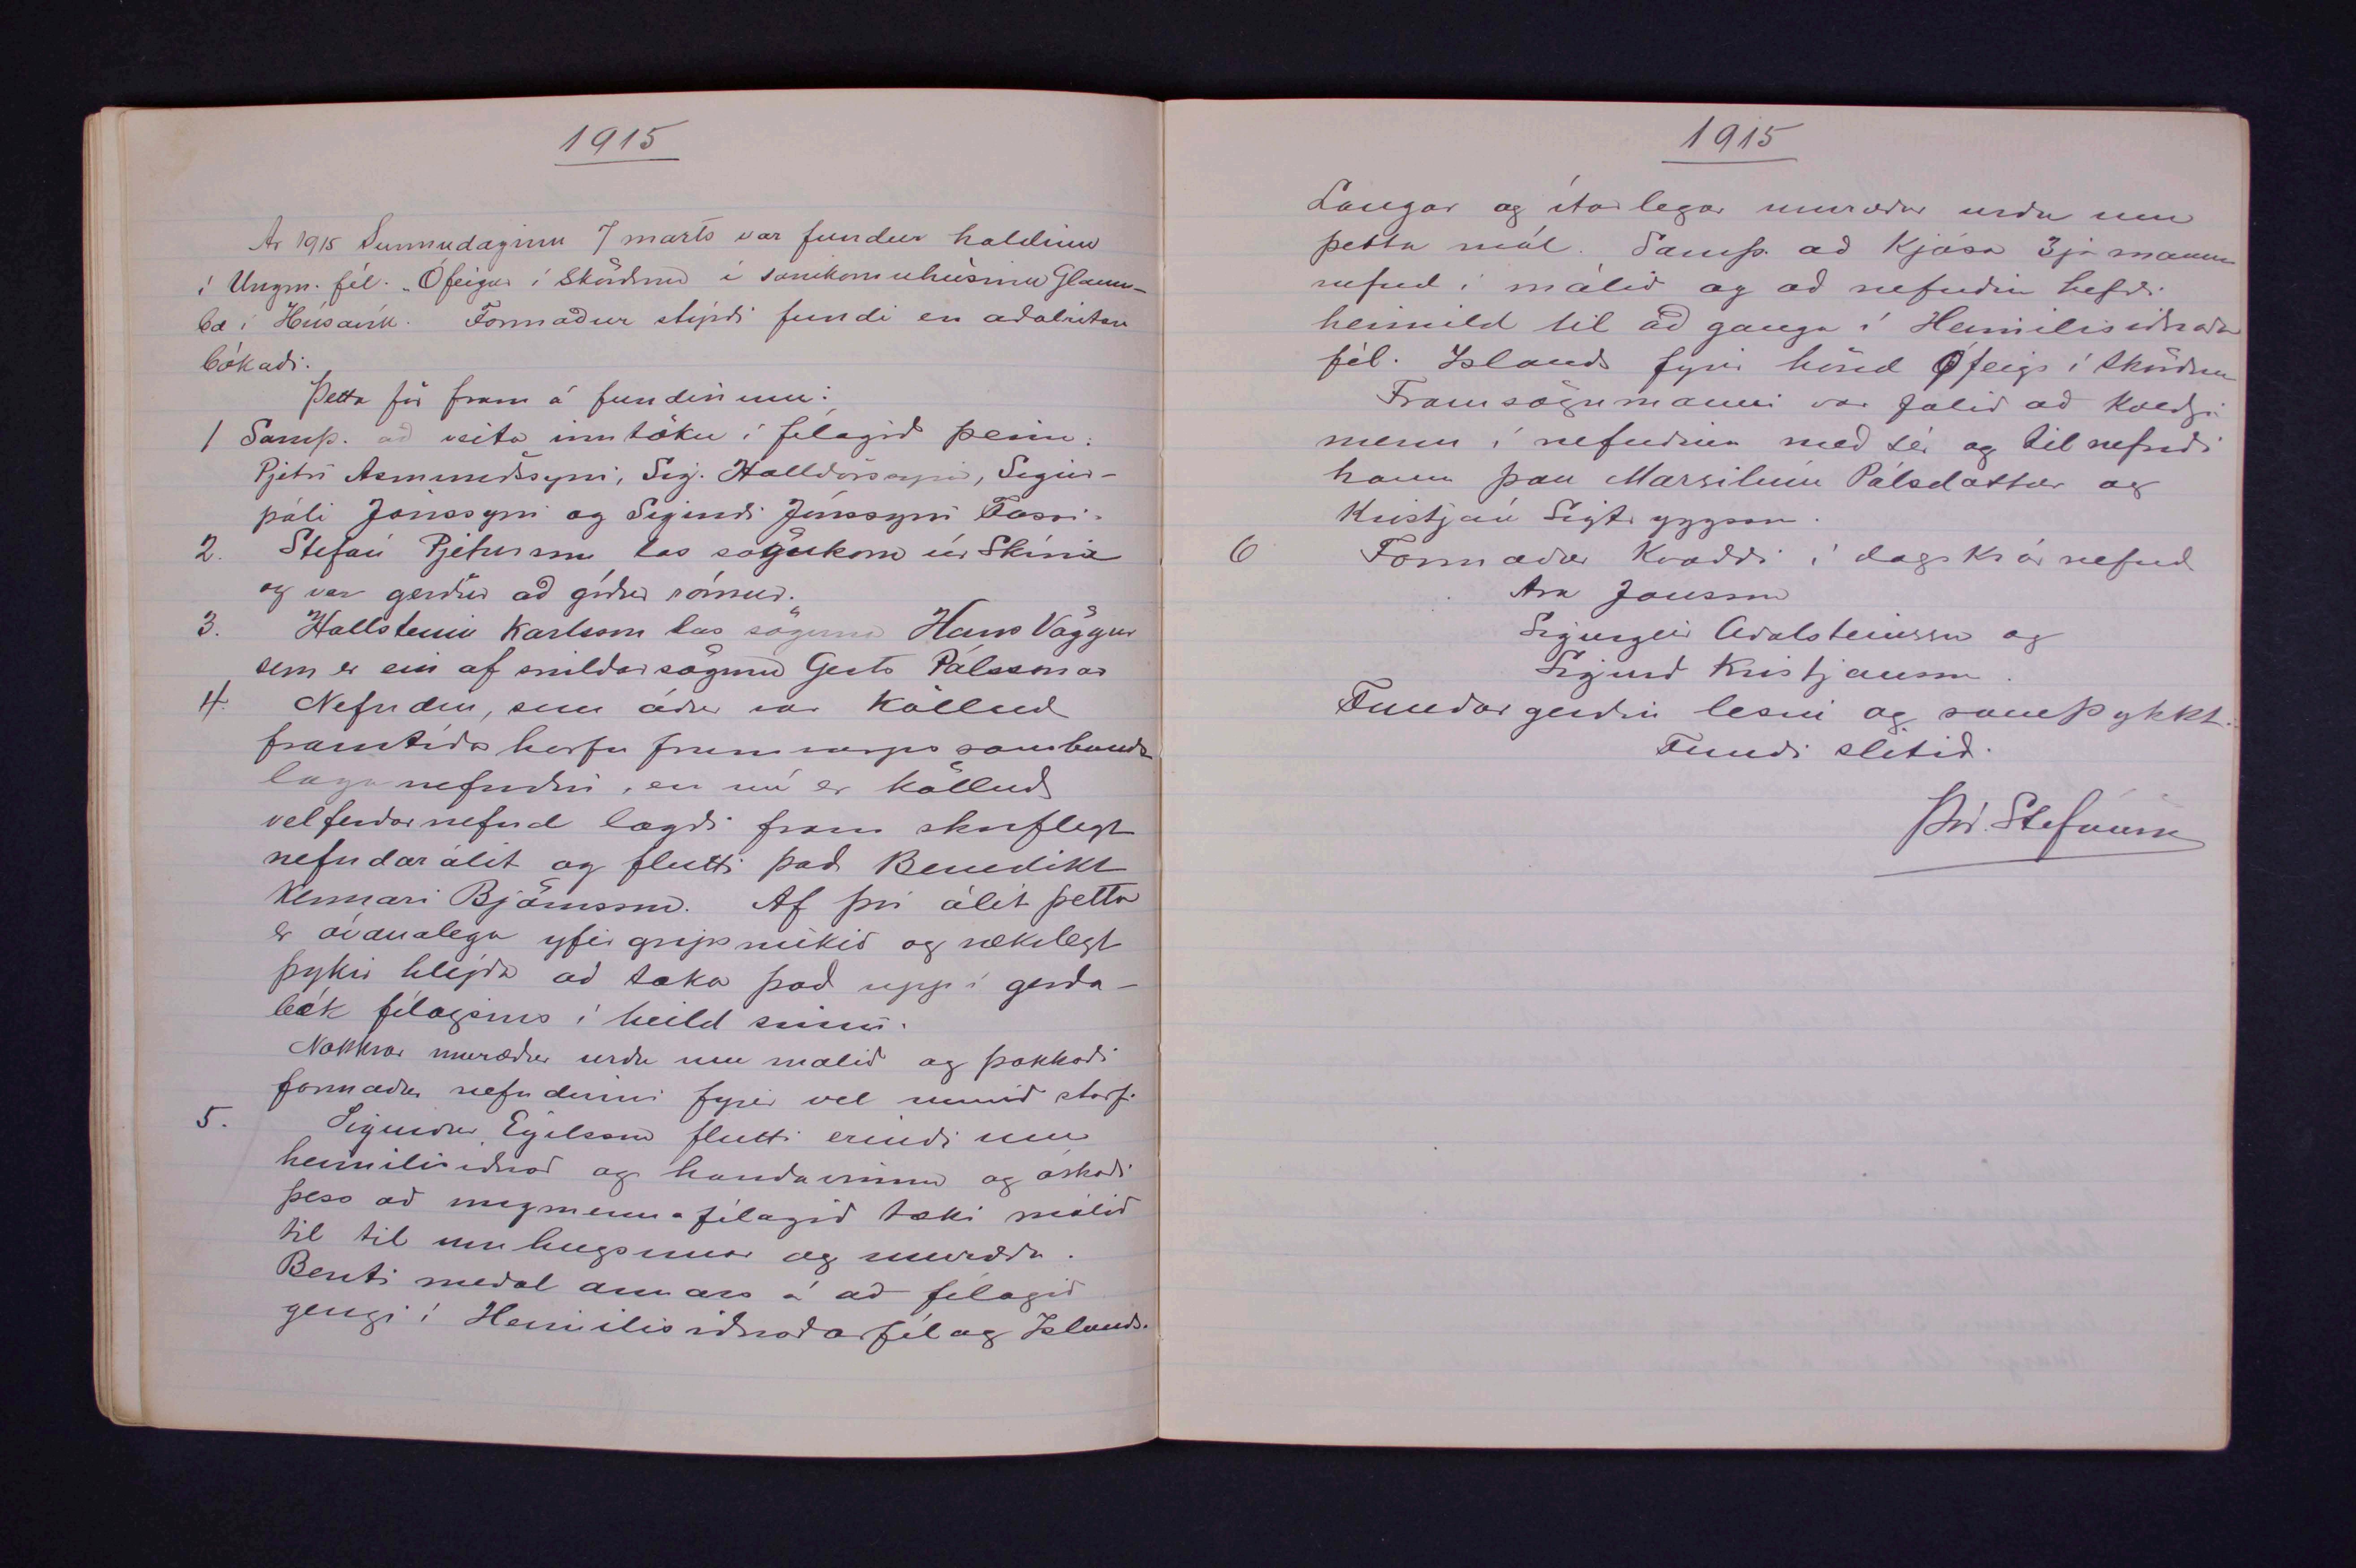 1915
Ár 1915 Sunnudaginn 7 marts var fundur haldinn
í Ungm. fél. „Ófeigur í Skörðum í samkomuhúsinu Glaum-
bæ í Húsavík. Formaður stýrði fundi en aðalritari
bókaði.
Þetta fór fram á fundinum:
1 Samþ. að veita inntöku í félagið þeim:
Pjetri Asmundssyni, Sig. Halldórssyni, Sigur-
páli Jónssyni og Sigurði Jónssyni
2. Stefán Pjetursson las sögukorn úr Skírni
og var gerður að góður rómur.
3. Hallsteinn Karlsson las söguna Hans Vöggur
sem er ein af snildarsögum Gests Pálssonar
4. Nefndin, sem áður var kölluð
framtíðar horfu frumvarps sambands
laga nefndin, en nú er kölluð
velferðarnefnd lagði fram skriflegt
nefndarálit og flutti það Benedikt
kennari Björnsson. Af því álit þetta
er óvanalega yfirgripsmikið og rækilegt
þykir hlýða að taka það upp í gerða-
bók félagsins í heild sinni.
Nokkrar umræður urðu um malið og þakkaði
formaður nefndinni fyrir vel unnið starf.
5. Sigurður Egilsson flutti erindi um
heimilisiðnað og handavinnu og óskaði
þess að ungmennafélagið tæki málið
til til umhugsunar og umræðu.
Benti meðal annars á að félagið
gengi í Heimilisiðnaðarfélag Islands.
1915
Langar og ítarlegar umræður urðu um
þetta mál. Samþ. að kjósa 3ja manna
nefnd í málið og að nefndin hefði
heimild til að ganga í Heimilisiðnaðar
fél. Islands fyrir hönd Ófeigs í Skörðum
Framsögumanni var falið að kveðja
menn í nefndina með sér og tilnefndi
hann þau Marsilínu Pálsdóttur og
Kristján Sigtryggsson.
6 Formaður kvaddi í dagskrárnefnd
Ara Jónsson
Sigurgeir Aðalsteinsson og
Sigurð Kristjánsson.
Fundargerðin lesin og samþykkt.
Fundi slitið.
Þór. Stefánsson